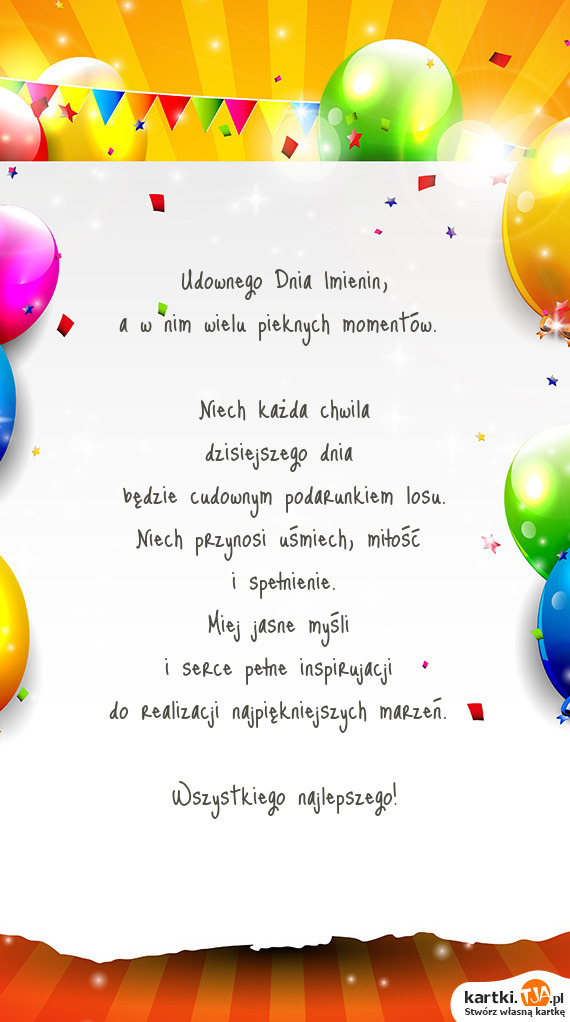 Udownego Dnia Imienin,
a w nim wielu pieknych momentów.
Niech każda chwila
dzisiejszego dnia
będzie cudownym podarunkiem losu.
Niech przynosi uśmiech, miłość
i spełnienie.
Miej jasne myśli
i serce pełne inspirujacji
do realizacji najpiękniejszych marzeń.
Wszystkiego najlepszego!
kartki.TJA.pl
Stwórz własną kartkę